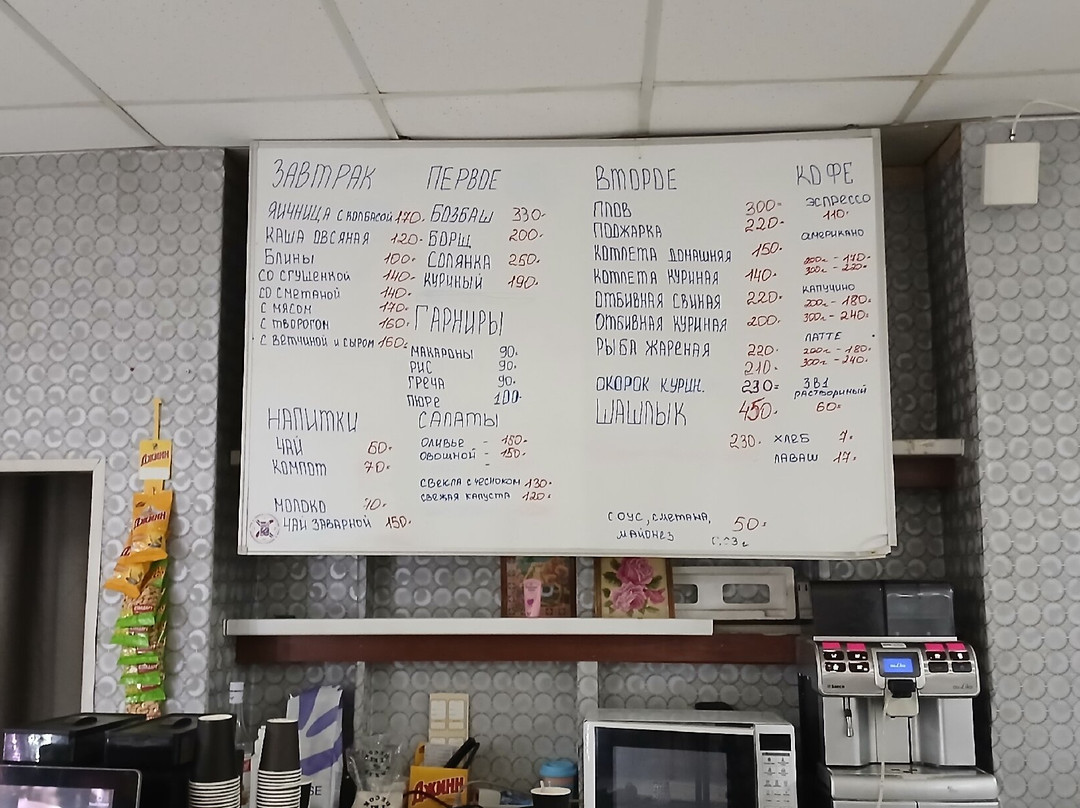 ЗАВТРАК
ЯИЧНИЦА С КОЛБАСОЙ 170.
КАША ОВСЯНАЯ 120.
БЛИНЫ 100=
СО СГУЩЕНКОЙ 140.
СО СМЕТАНОЙ 140.
С МЯСОМ 170=
С ТВОРОГОМ 160.
С ВЕТЧИНОЙ И СЫРОМ 160=
НАПИТКИ
ЧАЙ 60=
КОМПОТ 70=
МОЛОКО
ЧАЙ ЗАВАРНОЙ 150.
ПЕРВОЕ
БОЗБАШ 330-
БОРЩ 200.
СОЛЯНКА 260.
КУРИНЫЙ 190.
ГАРНИРЫ
МАКАРОНЫ 90.
РИС 90.
ГРЕЧА 90.
ПЮРЕ 100.
САЛАТЫ
ОЛИВЬЕ - 150=
ОВОШНОЙ - 150.
-
СВЕКЛА С ЧЕСНОКОМ 130=
СВЕЖАЯ КАПУСТА 120=
ВТОРОЕ
ПЛОВ 300=
ПОДЖАРКА 220=
КОТЛЕТА ДОМАШНЯЯ 150.
КОТЛЕТА КУРИНАЯ 140.
ОТБИВНАЯ СВИНАЯ 220.
ОТБИВНАЯ КУРИНАЯ 200.
РЫБА ЖАРЕНАЯ 220=
210=
ОКОРОК КУРИН. 230=
ШАШЛЫК 450.
230.
СОУС, СМЕТАНА,
МАЙОНЕЗ 50=
КОФЕ
ЭСПРЕССО
110.
АМЕРИКАНО
200г - 170=
300г - 220=
КАПУЧИНО
200г - 180.
300г - 240.
ЛАТТЕ
200г - 180.
300г - 240.
3 В 1
РАСТВОРИНЫЙ
60=
ХЛЕБ 7=
ЛАВАШ 17=
ДЖИНН
ДЖИНН
ДЖИНН
Saeco